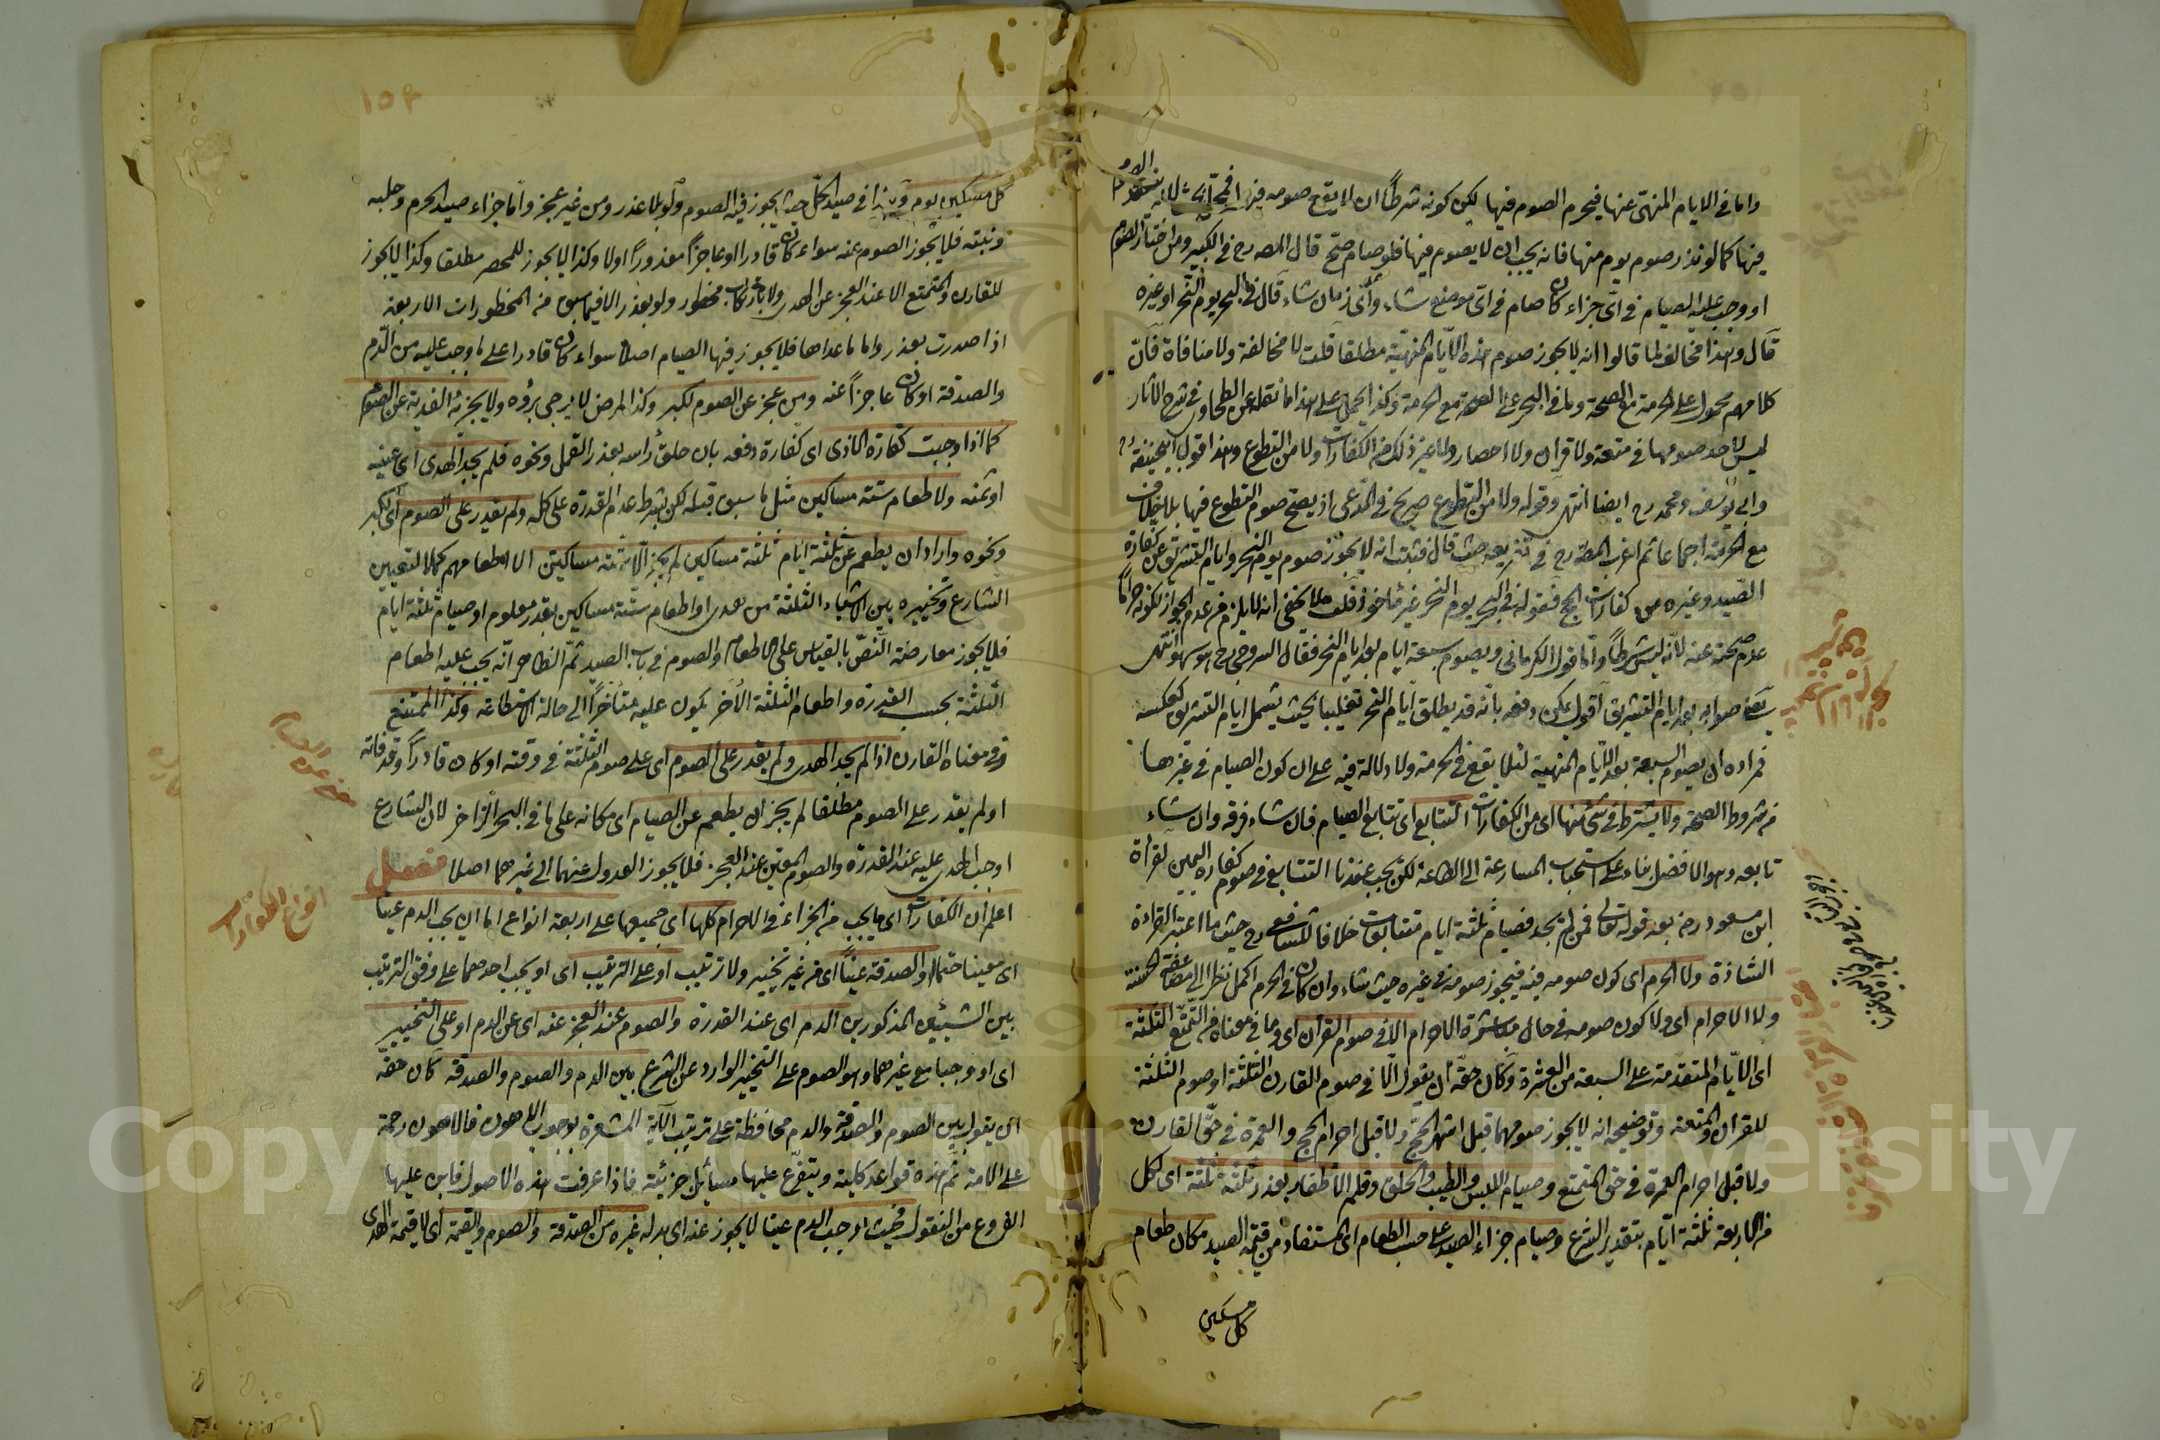 واما في الايام المنهى عنها فيحرم الصوم فيها لكن كونه شرطاً ان لا يقع صومه فيها
فيها كما لو نذر صوم يوم منها فانه يجب ان لا يصوم فيها فلو صام صح قال المصر رح في الكبير ومن اختار الصوم
او وجب عليه الصيام في اي جزاء كان صام في اي موضع شاء واي زمان شاء قال في البحر يوم النحر او غيره
قال وهذا مخالف لما قالوا انه لا يجوز صوم هذه الايام المنهية مطلقا قلت لا مخالفة ولا منافاة فان
كلامهم محمول على الحرمة مع الصحة وما في البحر على الصحة مع الحرمة وكذا يحمل على هذا ما نقله عن الطحاوي في شرح الآثار
ليس لاحد صومها في متعة ولا قران ولا احصار ولا غير ذلك من الكفارات ولا من التطوع وهذا قول ابي حنيفة رح
وابي يوسف ومحمد رح ايضا انتهى وقوله ولا من التطوع صريح في المدعى اذ يصح صوم التطوع فيها بلا خلاف
مع الحرمة اجماعا ثم اغرب المصر رح في تفريعه حيث قال فثبت انه لا يجوز صوم يوم النحر وايام التشريق عن كفارة
الصيد وغيره من كفارات الحج فقوله في البحر يوم النحر غير مأخوذ قلت فلا يخفى انه لا يلزم من عدم الجواز لكونه حراماً
عدم صحته عنه لانه ليس شرطاً واما قول الكرماني ويصوم سبعة ايام بعد ايام النحر فقال السروجي رح هو سهو انتهى
يعني صوابه بعد ايام التشريق اقول يمكن دفعه بانه قد يطلق ايام النحر تغليبا بحيث يشمل ايام التشريق كعكسه
فمراده ان يصوم السبعة بعد الايام المنهية لئلا يقع في الحرمة ولا دلالة فيه على ان كون الصيام في غيرها
من شروط الصحة ولا يشترط في شئ منها اي من الكفارات التتابع اي تتابع الصيام فان شاء فرقه وان شاء
تابعه وهو الافضل بناء على استحباب المسارعة الى الطاعة لكن يجب عندنا التتابع في صوم كفارة اليمين لقراءة
ابن مسعود رض بعد قوله تعالى فمن لم يجد فصيام ثلثة ايام متتابعات خلافا للشافعي رح حيث ما اعتبر القراءة
الشاذة ولا الحرم اي كون صومه فيه فيجوز صومه في غيره حيث شاء وان كان في الحرم اكمل نظرا الى مضاعفة الحسنة
ولا الاحرام اي ولا كون صومه في حال مباشرة الاحرام الا في صوم القران اي وما في معناه من التمتع الثلثة
اي الايام المتقدمة على السبعة من العشرة وكان حقه ان يقول الا في صوم القارن الثلثة او صوم الثلثة
للقران والمتعة وتوضيحه انه لا يجوز صومهما قبل اشهر الحج ولا قبل احرام الحج والعمرة في حق القارن
ولا قبل احرام العمرة في حق المتمتع وصيام اللبس والطيب والحلق وقلم الاظفار بعذر ثلثة ثلثة اي لكل
من الاربعة ثلثة ايام بتقدير الشرع وصيام جزاء الصيد على حسب الطعام اي المستفاد من قيمة الصيد مكان طعام
كل مسكين
١٥٤
كل مسكين يوم وهذا في صيد الحل حيث يجوز فيه الصوم ولو بلا عذر ومن غير عجز واما جزاء صيد الحرم وحلبه
ونبته فلا يجوز الصوم عنه سواء كان قادرا او عاجزاً معذوراً اولا وكذا لا يجوز للمحصر مطلقا وكذا لا يجوز
للقارن والمتمتع الا عند العجز عن الهدى ولا بارتكاب محظور ولو بعذر الا فيما سبق من المحظورات الاربعة
اذا صدرت بعذر واما ما عداها فلا يجوز فيها الصيام اصلا سواء كان قادرا على ما وجب عليه من الدم
والصدقة او كان عاجزاً عنه ومن عجز عن الصوم لكبر وكذا لمرض لا يرجى برؤه ولا يجزئه الفدية عن الصوم
كما اذا وجبت كفارة الاذى اي كفارة دفعه بان حلق رأسه بعذر القمل ونحوه فلم يجد الهدى اي عينه
او ثمنه ولا طعام ستة مساكين مثل ما سبق قبله لكن بشرط عدم القدرة على كله ولم يقدر على الصوم اي لكبر
ونحوه واراد ان يطعم عن ثلثة ايام ثلثة مساكين لم يجز الا ستة مساكين الا اطعامهم كملا لتعيين
الشارع وتخييره بين الاشياء الثلثة من هدى او اطعام ستة مساكين بقدر معلوم او صيام ثلثة ايام
فلا يجوز معارضة النص بالقياس على الاطعام والصوم في باب الصيد ثم الظاهر انه يجب عليه اطعام
الثلثة بحسب القدرة واطعام الثلثة الاخر يكون عليه متأخراً الى حالة الاستطاعة وكذا المتمتع
وفي معناه القارن اذا لم يجد الهدى ولم يقدر على الصوم اي على صوم الثلثة في وقته او كان قادراً وقد فاته
او لم يقدر على الصوم مطلقا لم يجز ان يطعم عن الصيام اي مكانه على ما في البحر الزاخر لان الشارع
اوجب الهدى عليه عند القدرة والصوم المعين عند العجز فلا يجوز العدول عنهما الى غيرهما اصلا فصل
اعلم ان الكفارات اي ما يجب من الجزاء في الاحرام كلها اي جميعها على اربعة انواع اما ان يجب الدم عينا
اي معينا حتما او الصدقة عيناً اي من غير تخيير ولا ترتيب او على الترتيب اي او يجب احدهما على وفق الترتيب
بين الشيئين المذكورين الدم اي عند القدرة والصوم عند العجز عنه اي عن الدم او على التخيير
اي او وجبا مع غيرهما وهو الصوم على التخيير الوارد عن الشرع بين الدم والصوم والصدقة كان حقه
ان يقول بين الصوم والصدقة والدم محافظة على ترتيب الآية المشعرة بوجوب الاهون فالاهون رحمة
على الامة ثم هذه قواعد كلية ويتفرع عليها مسائل جزئية فاذا عرفت هذه الاصول فابن عليها
الفروع من النقول فحيث وجب الدم عينا لا يجوز عنه اي بدله غيره من الصدقة والصوم والقيمة اي لا قيمة الهدى
انواع الكفارات
Copyright © King Saud University